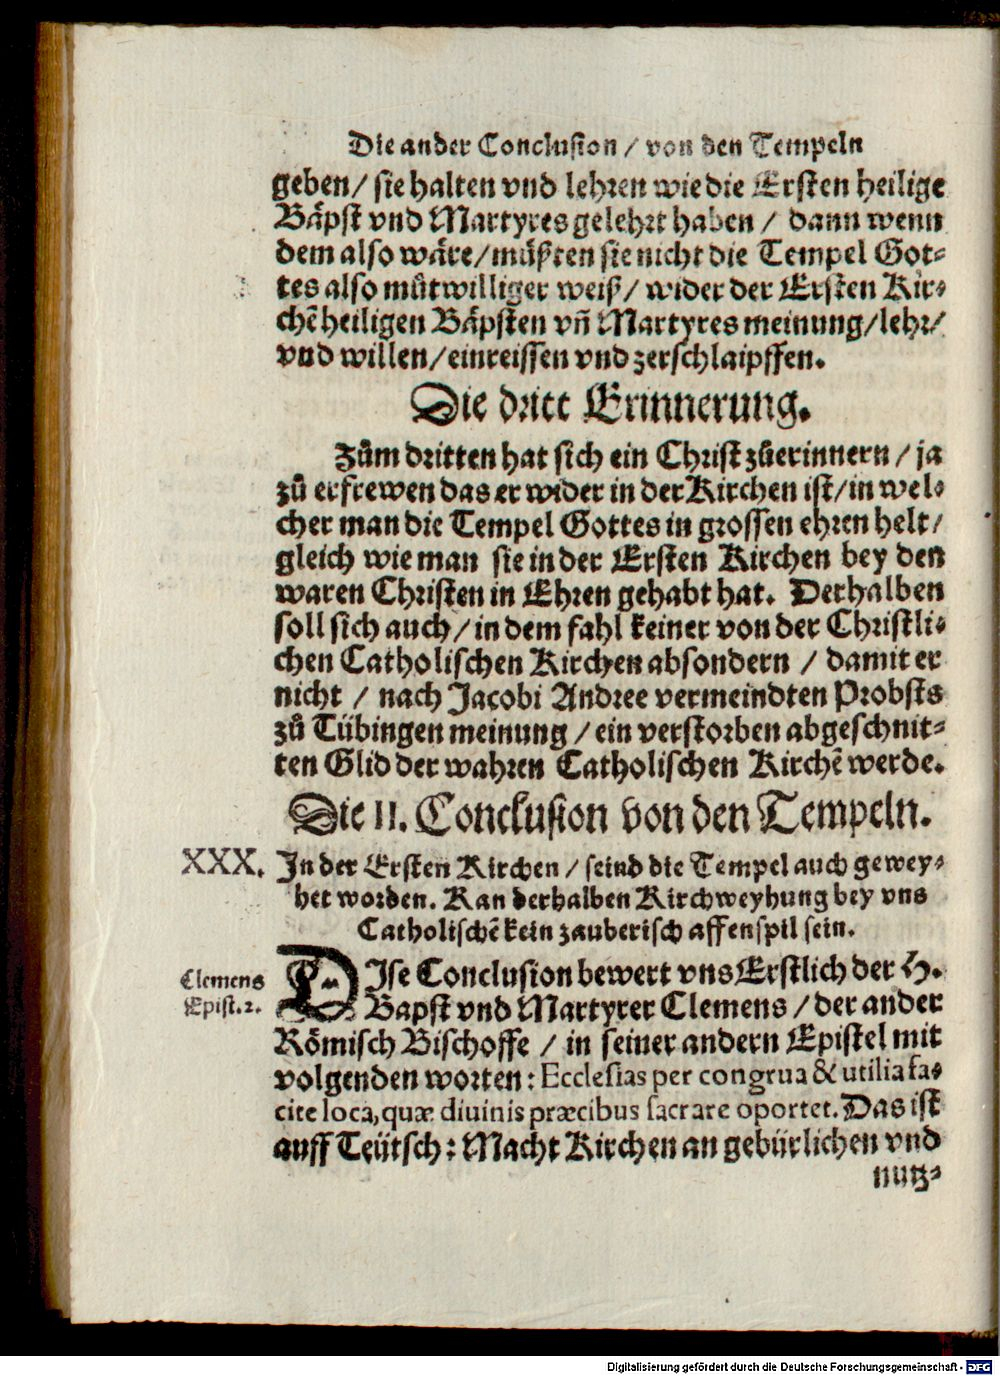 Die ander Conclusion / von den Tempeln
geben / sie halten vnd lehren wie die Ersten heilige
Bäpst vnd Martyres gelehrt haben / dann wenn
dem also wäre / müßten sie nicht die Tempel Got-
tes also můtwilliger weiß / wider der Ersten Kir-
chẽ heiligen Bäpsten vñ Martyres meinung / lehr /
vnd willen / einreissen vnd zerschlaipffen.
Die dritt Erinnerung.
Zům dritten hat sich ein Christ zůerinnern / ja
zů erfrewen das er wider in der Kirchen ist / in wel-
cher man die Tempel Gottes in grossen ehren helt /
gleich wie man sie in der Ersten Kirchen bey den
waren Christen in Ehren gehabt hat. Derhalben
soll sich auch / in dem fahl keiner von der Christli-
chen Catholischen Kirchen absondern / damit er
nicht / nach Jacobi Andree vermeindten Probsts
zů Tübingen meinung / ein verstorben abgeschnit-
ten Glid der wahren Catholischen Kirchẽ werde.
Die II. Conclusion von den Tempeln.
XXX. In der Ersten Kirchen / seind die Tempel auch gewey-
het worden. Kan derhalben Kirchweyhung bey vns
Catholischẽ kein zauberisch affenspil sein.
Clemens
Epist. 2.
DIse Conclusion bewert vns Erstlich der H.
Bapst vnd Martyrer Clemens / der ander
Römisch Bischoffe / in seiner andern Epistel mit
volgenden worten: Ecclesias per congrua & utilia fa-
cite loca, quæ diuinis præcibus sacrare oportet. Das ist
auff Teütsch: Macht Kirchen an gebürlichen vnd
nutz-
Digitalisierung gefördert durch die Deutsche Forschungsgemeinschaft - DFG